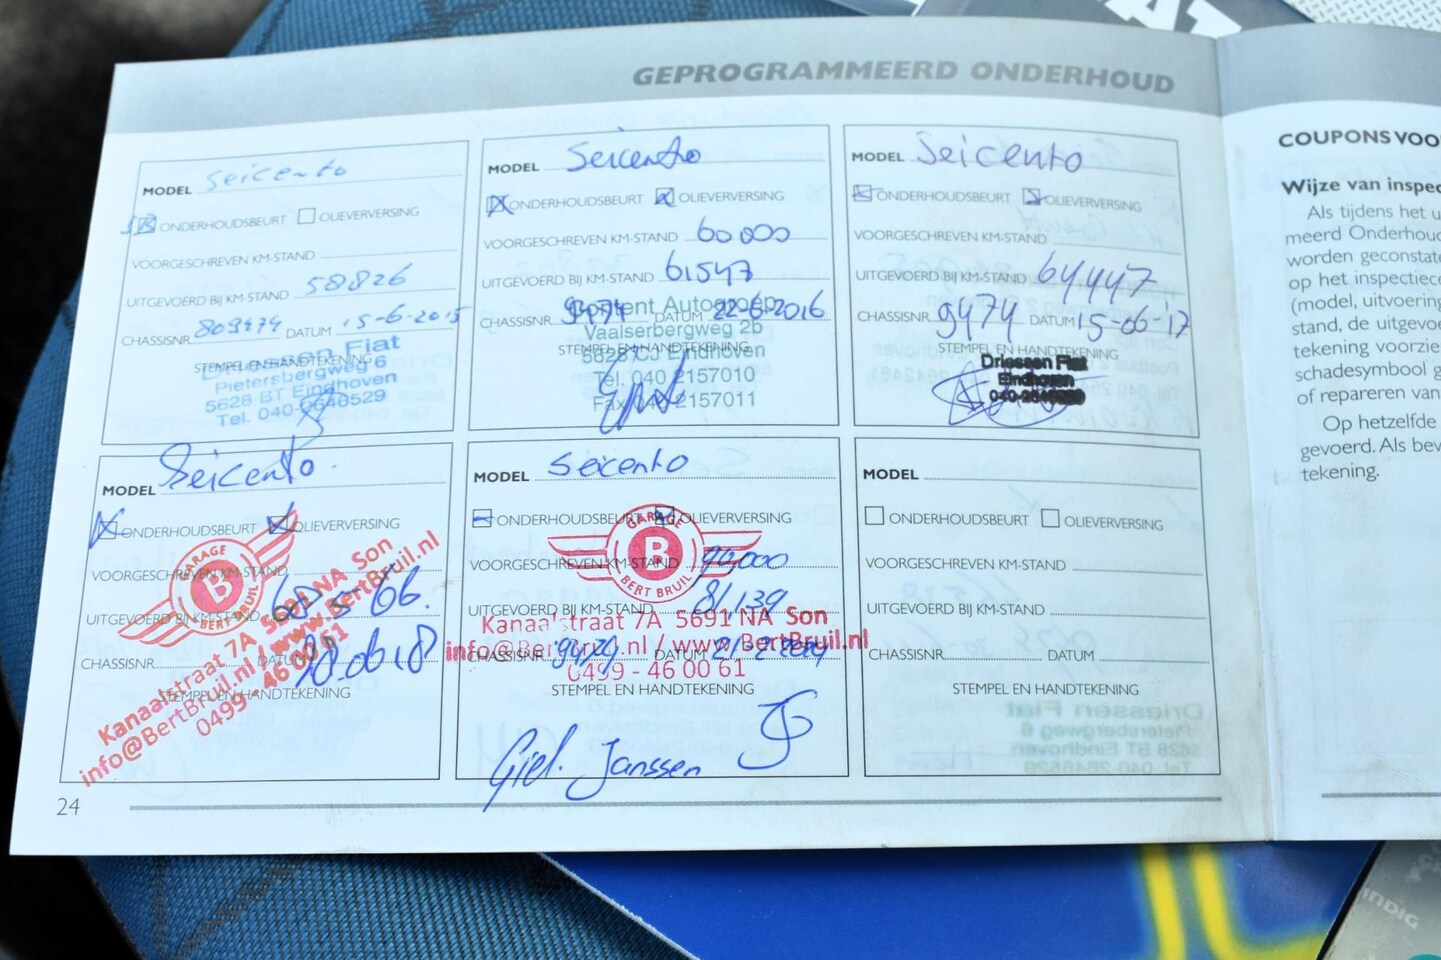 GEPROGRAMMEERD ONDERHOUD
MODEL Seicento
ONDERHOUDSBEURT OLIEVERVERSING
VOORGESCHREVEN KM-STAND
UITGEVOERD BIJ KM-STAND 58826
CHASSISNR. 809474 DATUM 15-6-2015
STEMPEL EN HANDTEKENING
Driessen Fiat
Pietersbergweg 6
5628 BT Eindhoven
Tel. 040-2640529
MODEL Seicento
ONDERHOUDSBEURT OLIEVERVERSING
VOORGESCHREVEN KM-STAND 60000
UITGEVOERD BIJ KM-STAND 61547
CHASSISNR. 9474 DATUM 22-6-2016
STEMPEL EN HANDTEKENING
Autogroep
Vaalserbergweg 2b
5628 CJ Eindhoven
Tel. 040 2157010
Fax 040 2157011
MODEL Seicento
ONDERHOUDSBEURT OLIEVERVERSING
VOORGESCHREVEN KM-STAND
UITGEVOERD BIJ KM-STAND 64447
CHASSISNR. 9474 DATUM 15-06-'17
STEMPEL EN HANDTEKENING
Driessen Fiat
Eindhoven
MODEL Seicento
ONDERHOUDSBEURT OLIEVERVERSING
VOORGESCHREVEN KM-STAND
UITGEVOERD BIJ KM-STAND
CHASSISNR. DATUM
STEMPEL EN HANDTEKENING
GARAGE
B
BERT BRUIL
Kanaalstraat 7A 5691 NA Son
info@BertBruil.nl / www.BertBruil.nl
0499 - 46 00 61
MODEL Seicento
ONDERHOUDSBEURT OLIEVERVERSING
VOORGESCHREVEN KM-STAND
UITGEVOERD BIJ KM-STAND 81,139
CHASSISNR. 9474 DATUM
STEMPEL EN HANDTEKENING
GARAGE
B
BERT BRUIL
Kanaalstraat 7A 5691 NA Son
info@BertBruil.nl / www.BertBruil.nl
0499 - 46 00 61
Giel. Janssen
MODEL
ONDERHOUDSBEURT OLIEVERVERSING
VOORGESCHREVEN KM-STAND
UITGEVOERD BIJ KM-STAND
CHASSISNR. DATUM
STEMPEL EN HANDTEKENING
24
COUPONS VOO
Wijze van inspec
Als tijdens het u
meerd Onderhoud
worden geconstate
op het inspectiece
(model, uitvoering
stand, de uitgevoe
tekening voorzie
schadesymbool g
of repareren van
Op hetzelfde
gevoerd. Als bev
tekening.